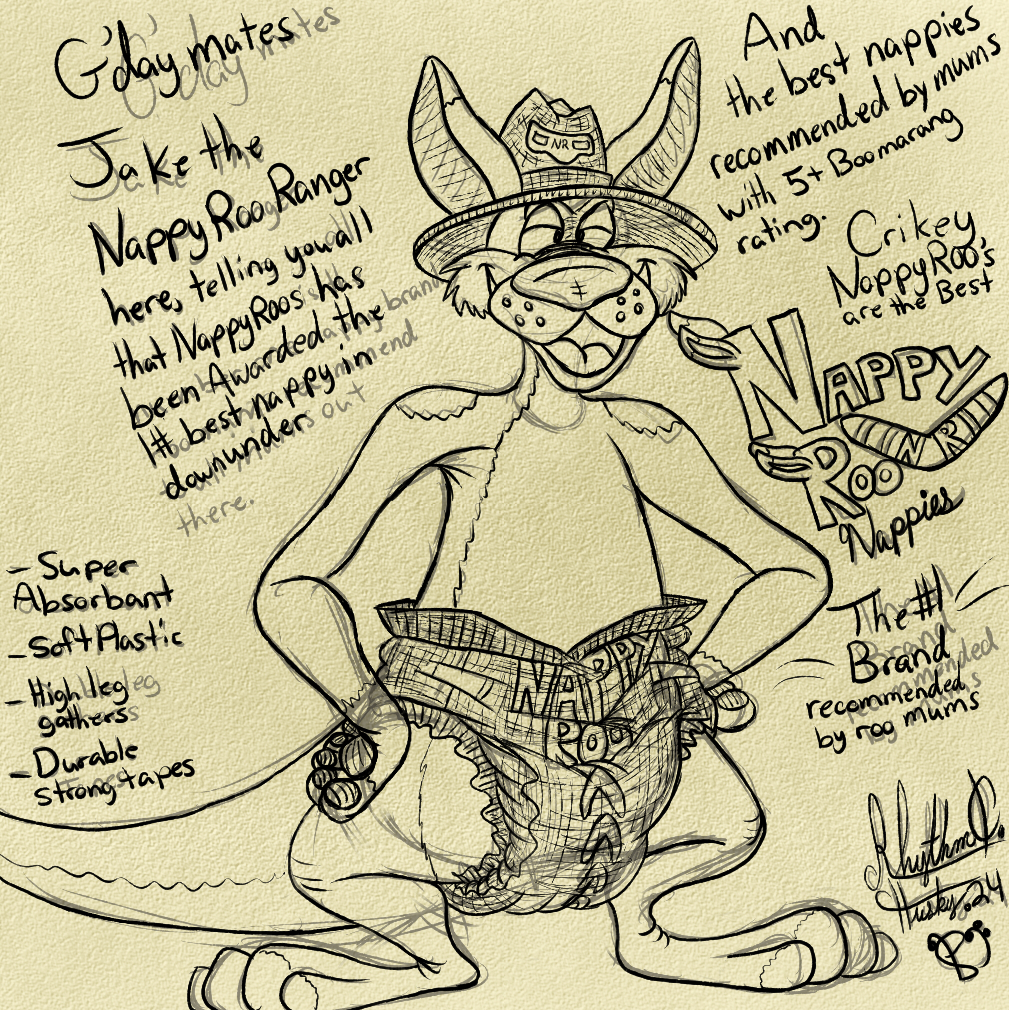 G'day mates
Jake the
NappyRooRanger
here, telling you all
that NappyRoos has
been Awarded the
1# best nappy in
downunder
there.
- Super
Absorbant
- Soft Plastic
- High leg
gathers
- Durable
strong tapes
NR
NAPPY
ROO
And
the best nappies
recommended by mums
with 5+ Boomarang
rating.
Crikey
NappyRoo's
are the Best
NAPPY
ROO
Nappies
The #1
Brand
recommended
by roo mums
Rhythm
Husky.24